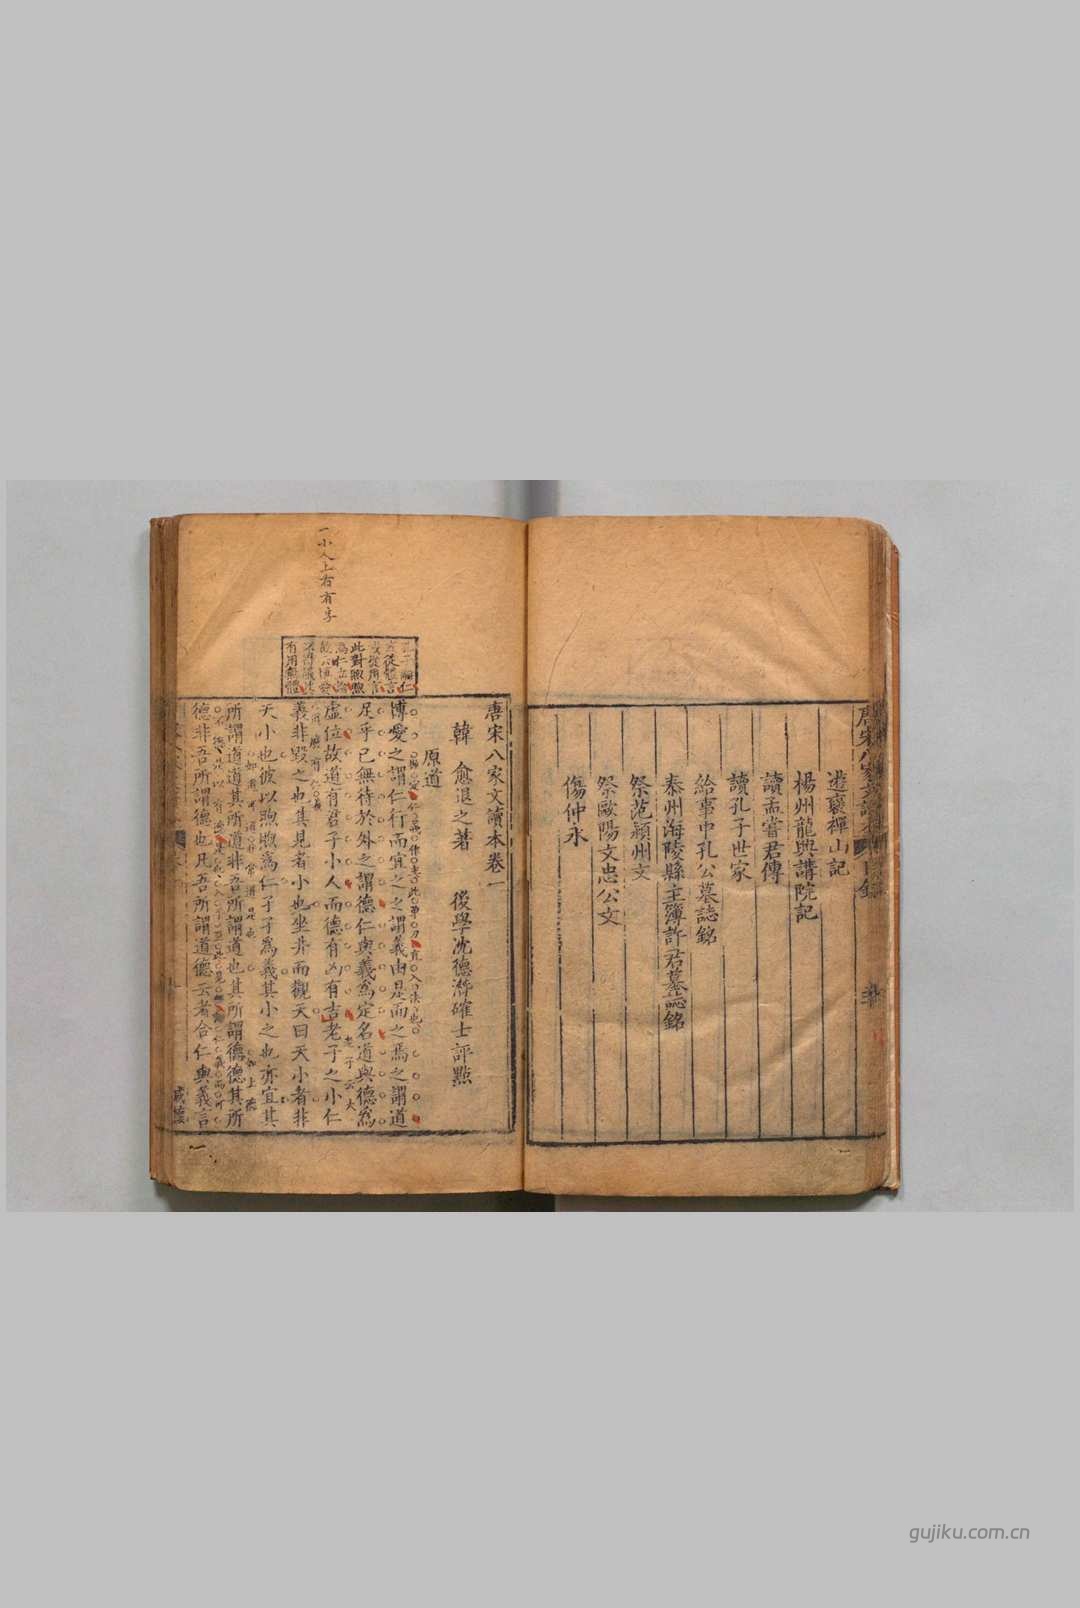 遊褒禪山記
楊州龍興講院記
讀孟嘗君傳
讀孔子世家
給事中孔公墓誌銘
泰州海陵縣主簿許君墓誌銘
祭范潁州文
祭歐陽文忠公文
傷仲永
唐宋八家文讀本卷一
韓愈退之著 後學沈德潛確士評點
原道
博愛之謂仁行而宜之之謂義由是而之焉之謂道
足乎己無待於外之謂德仁與義爲定名道與德爲
虛位故道有君子小人而德有凶有吉老子之小仁
義非毀之也其見者小也坐井而觀天曰天小者非
天小也彼以煦煦爲仁孑孑爲義其小之也亦宜其
所謂道道其所道非吾所謂道也其所謂德德其所
德非吾所謂德也凡吾所謂道德云者合仁與義言
一小人上右有字
此對煦煦
有用無體
老子云大
gujiku.com.cn